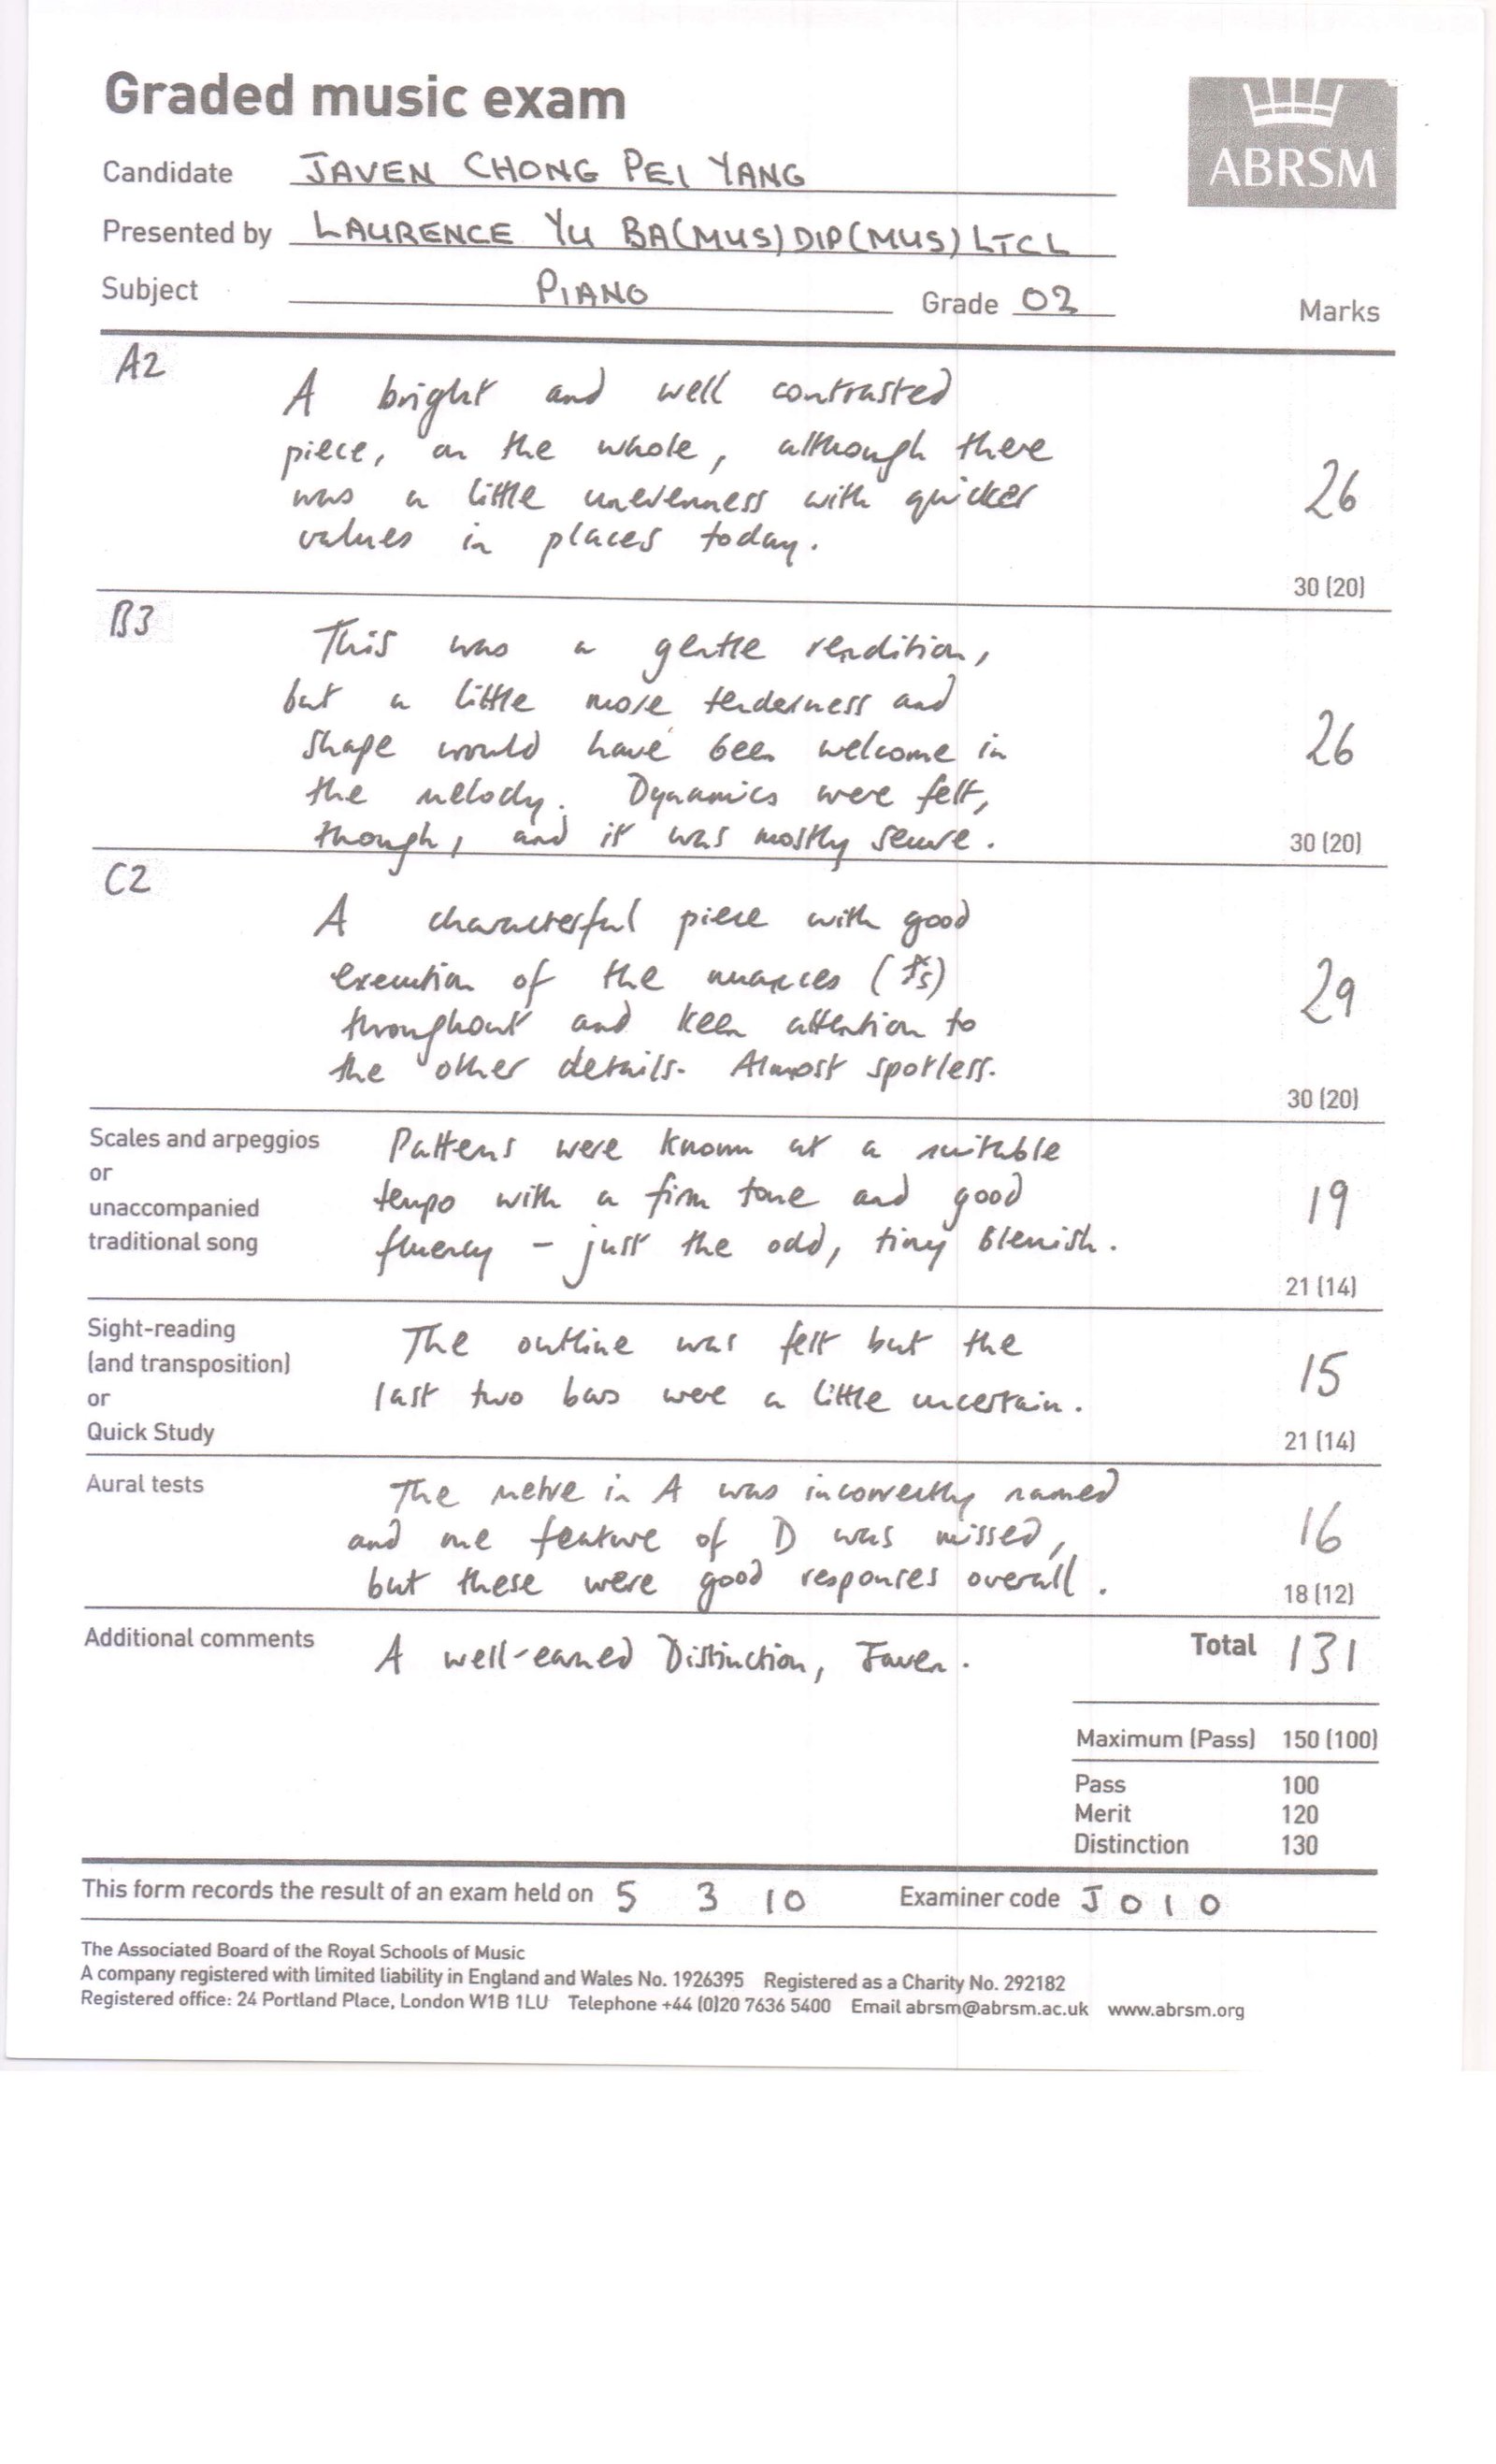 Graded music exam
ABRSM
Candidate JAVEN CHONG PEI YANG
Presented by LAURENCE YU BA(MUS)DIP(MUS)LTCL
Subject PIANO Grade 02 Marks
A2
A bright and well contrasted
piece, on the whole, although there
was a little unevenness with quicker
values in places today.
26
30 (20)
B3
This was a gentle rendition,
but a little more tenderness and
shape would have been welcome in
the melody. Dynamics were felt,
though, and it was mostly secure.
26
30 (20)
C2
A characterful piece with good
execution of the nuances
throughout and keen attention to
the other details. Almost spotless.
29
30 (20)
Scales and arpeggios
or
unaccompanied
traditional song
Patterns were known at a suitable
tempo with a firm tone and good
fluency – just the odd, tiny blemish.
19
21 (14)
Sight-reading
(and transposition)
or
Quick Study
The outline was felt but the
last two bars were a little uncertain.
15
21 (14)
Aural tests
The metre in A was incorrectly named
and one feature of D was missed,
but these were good responses overall.
16
18 (12)
Additional comments
A well-earned Distinction, Javen.
Total 131
Maximum (Pass) 150 (100)
Pass 100
Merit 120
Distinction 130
This form records the result of an exam held on 5 3 10 Examiner code J 0 1 0
The Associated Board of the Royal Schools of Music
A company registered with limited liability in England and Wales No. 1926395 Registered as a Charity No. 292182
Registered office: 24 Portland Place, London W1B 1LU Telephone +44 (0)20 7636 5400 Email abrsm@abrsm.ac.uk www.abrsm.org